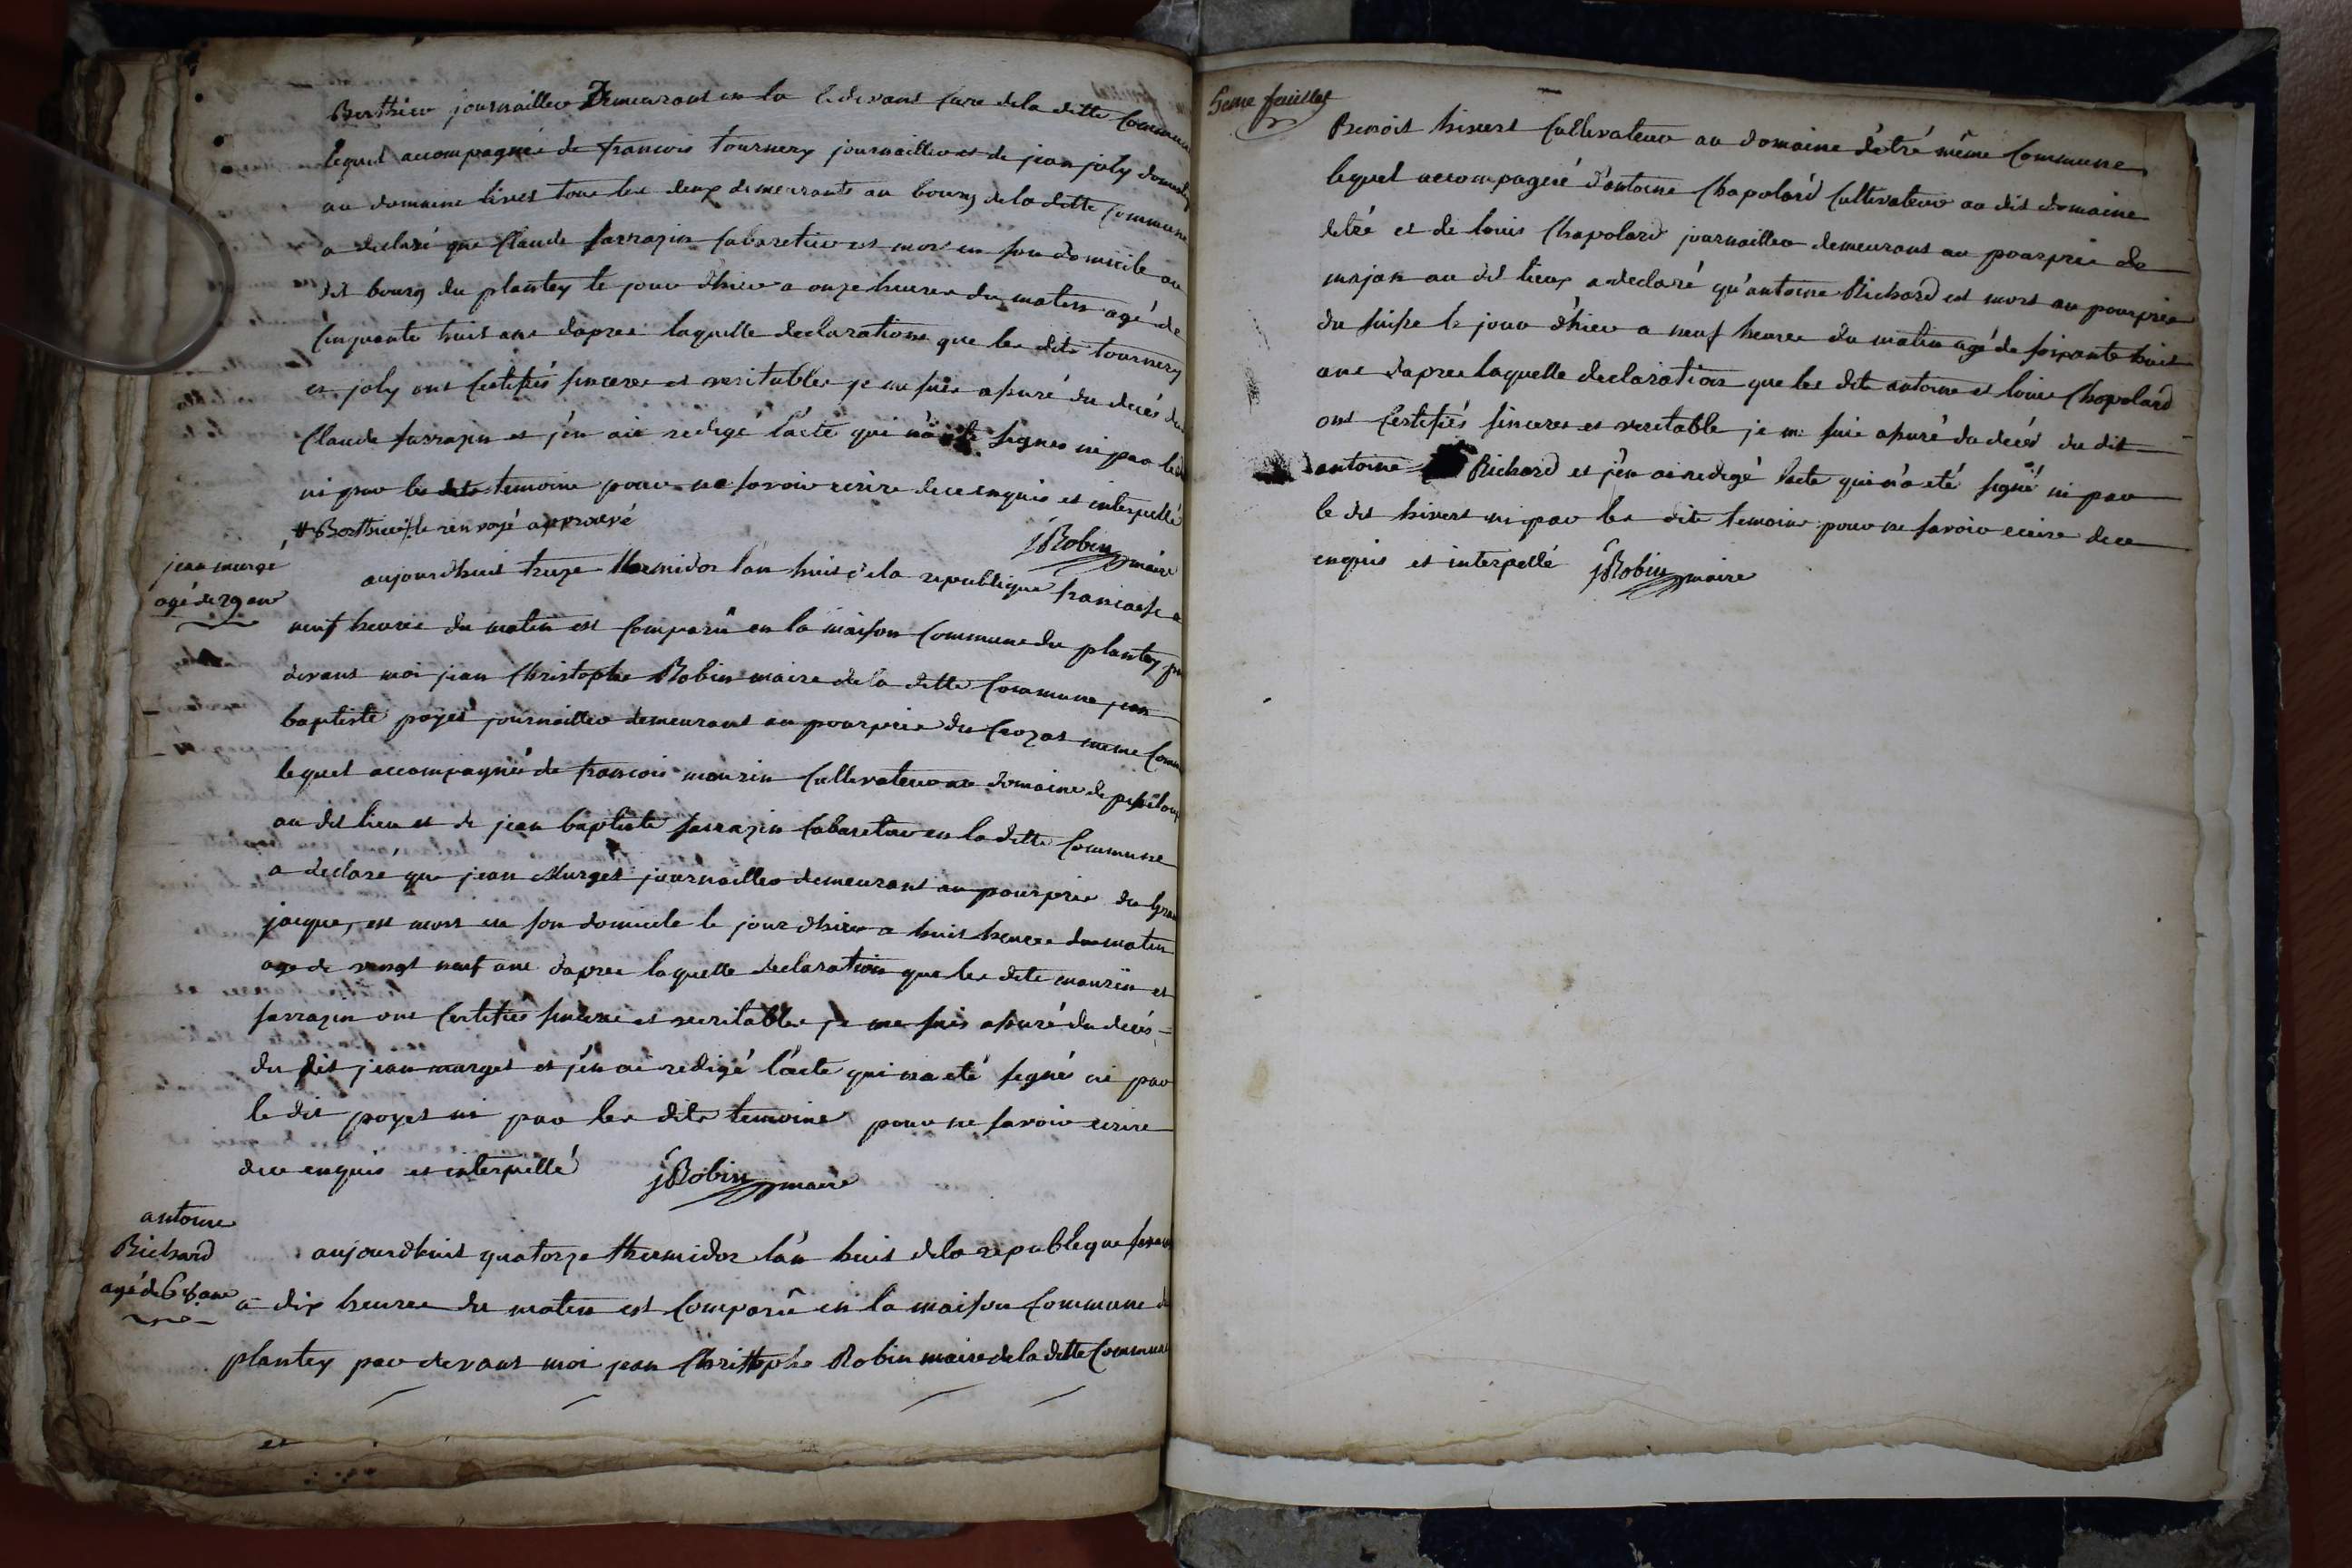 Berthier journaillier Demeurant en la cidevant cure dela ditte Commune
lequel accompagnée de francois tournery journaillier et de jean joly
au domaine tous les deux demeurants au bourg dela ditte Commune
a declaré que Claude sarrazin Cabaretier est mort en son domicile au
dit bourg du plantey le jour dhier a onze heures du matin agé de
Cinquante huit ans dapres laquelle declaration que les dits tournery
et joly ont Certifiés sinceres et veritables je me suis assuré du decés du
Claude sarrazin et j'en ai redigé l'acte qui signer ni par
ni par les dits temoins pour ne savoir ecrire dece enquis et interpellé
# Berthier le renvoyé approuvé
jRobin maire
jean murgé
agé de 29 ans
aujourdhuit treze thermidor l'an huit dela republique francaise a
neuf heures du matin est Comparu en la maison Commune du plantey par
devant moi jean Christophe Robin maire dela ditte Commune jean
baptiste poyet journaillier demeurant au pourprie du Crozat meme
lequel accompagnée de francois maurin Cultivateur au domaine de
au dit lieu et de jean baptiste sarrazin Cabaretier en la ditte Commune
a declaré que jean Murget journaillier demeurant au pourprie du
jacque, est mort en son domicile le jour dhier a huit heures du matin
age de vingt neuf ans dapres laquelle declaration que les dits maurin et
sarrazin ont Certifiés sinceres et veritables je me suis assuré du decés
du dit jean murget et j'en ai redigé l'acte qui na eté signé ni par
le dit poyet ni par les dits temoins pour ne savoir ecrire
dece enquis et interpellé jRobin maire
antoine
Richard
agé de 68 ans
aujourdhuit quatorze thermidor l'an huit dela republique
a dix heures du matin est Comparu en la maison Commune du
plantey par devant moi jean Christophe Robin maire dela ditte Commune
5eme feuillet
Benoit hivert Cultivateur au domaine d'étré même Commune
lequel accompagné d'antoine Chapolard Cultivateur au dit domaine
detré et de louis Chapolard journaillier demeurant au pourprie de
majan au dit lieux a declaré qu'antoine Richard est mort au pourprie
du suisse le jour d'hier a neuf heures du matin agé de soixante huit
ans dapres laquelle declaration que les dits antoine et louis Chapolard
ont Certifiés sinceres et veritable je me suis assuré du decés du dit
antoine Richard et j'en ai redigé lacte qui n'a eté signé ni par
le dit hivert ni par les dits temoins pour ne savoir ecrire dece
enquis et interpellé jRobin maire